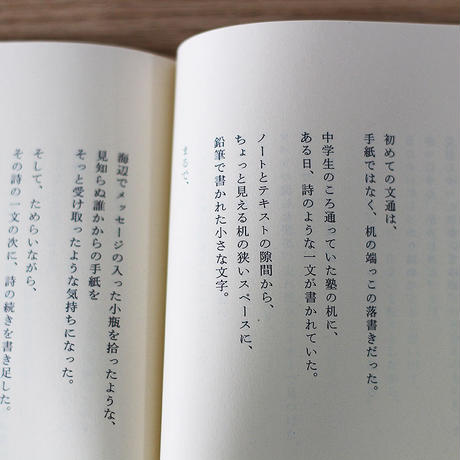 初めての文通は、
手紙ではなく、机の端っこの落書きだった。
中学生のころ通っていた塾の机に、
ある日、詩のような一文が書かれていた。
ノートとテキストの隙間から、
ちょっと見える机の狭いスペースに、
鉛筆で書かれた小さな文字。
まるで、
海辺でメッセージの入った小瓶を拾ったような、
見知らぬ誰かからの手紙を
そっと受け取ったような気持ちになった。
そして、ためらいながら、
その詩の一文の次に、詩の続きを書き足した。